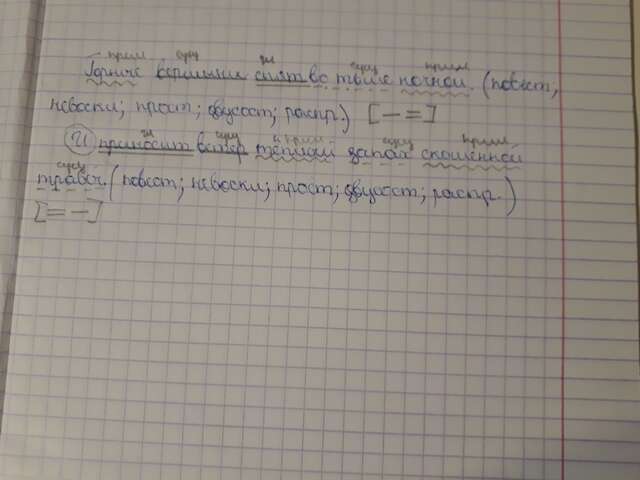 прил сущ гл сущ прил
Горные вершины спят во тьме ночной. (повест,
невоскл; прост; двусост; распр.) [— =]
гл сущ прил сущ прил
И приносит ветер тёплый запах скошенной
сущ
травы. (повест; невоскл; прост; двусост; распр.)
[= —]